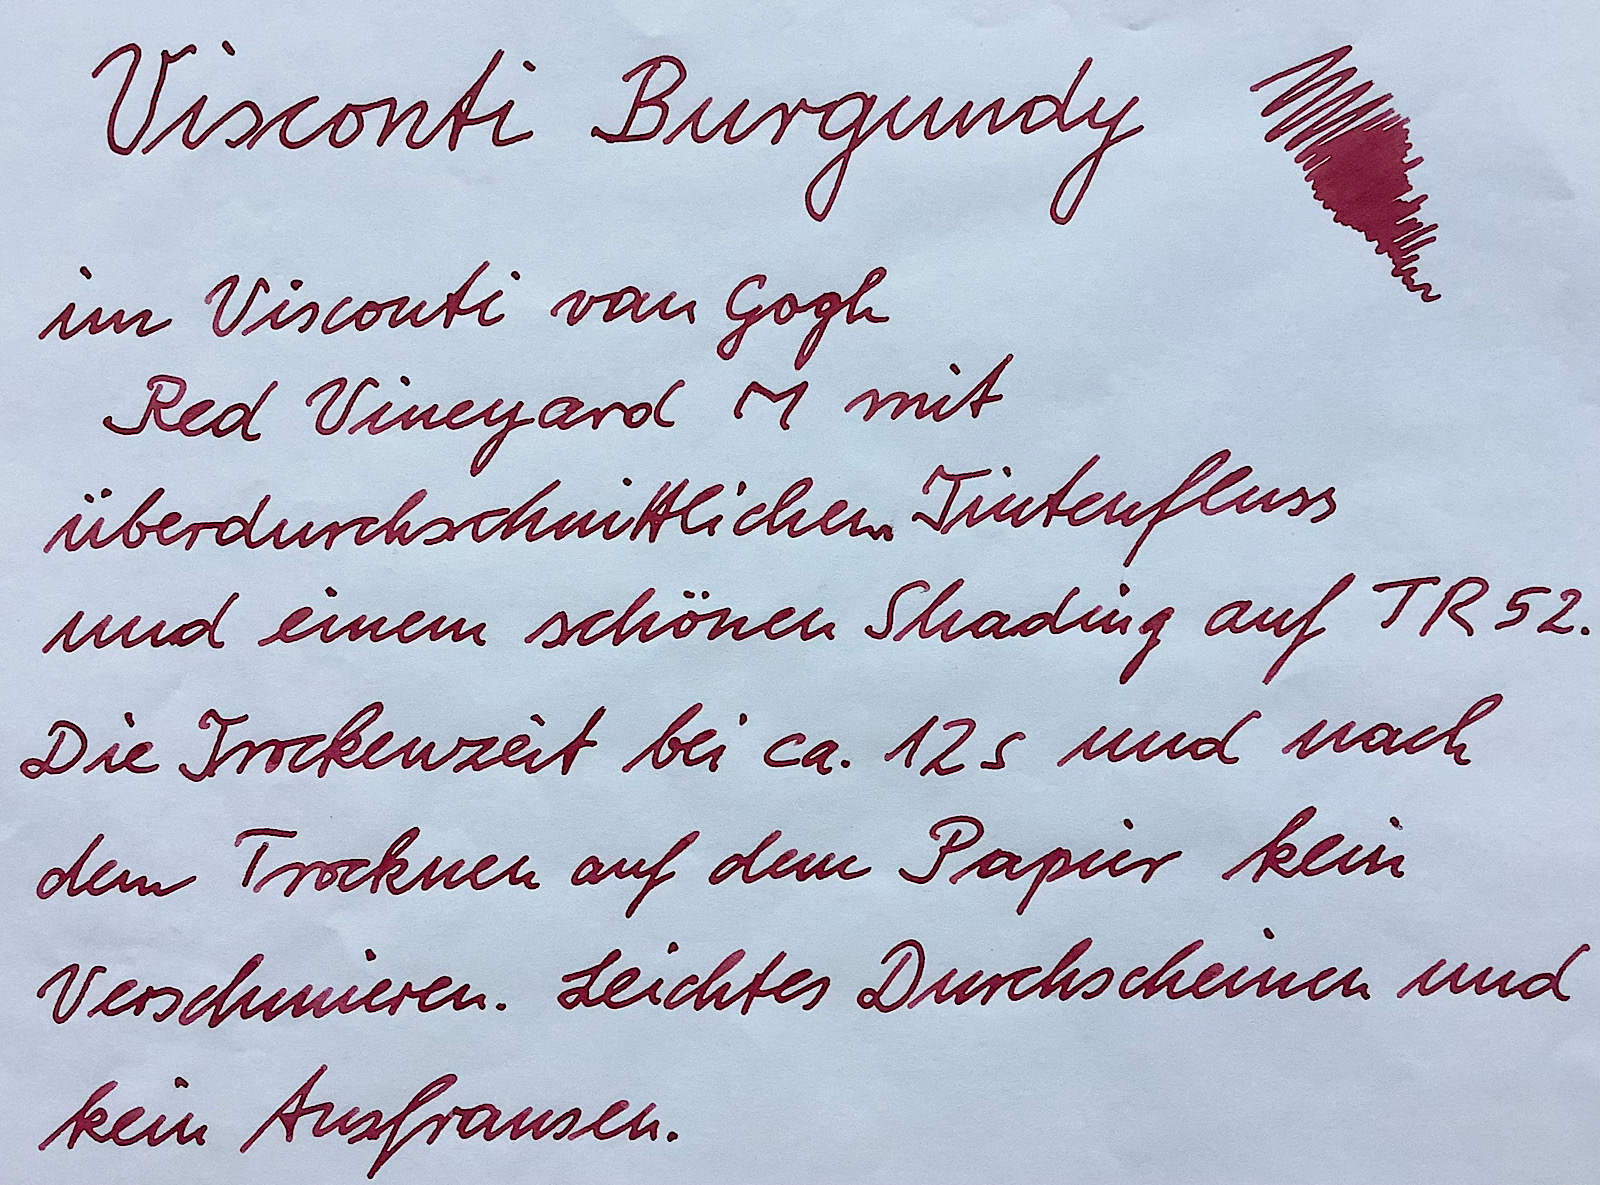 Visconti Burgundy
im Visconti van Gogh
Red Vineyard M mit
überdurchschnittlichen Tintenfluss
und einem schönen Shading auf TR 52.
Die Trockenzeit bei ca. 12 s und nach
dem Trocknen auf dem Papier kein
Verschmieren. Leichtes Durchscheinen und
kein Ausfransen.